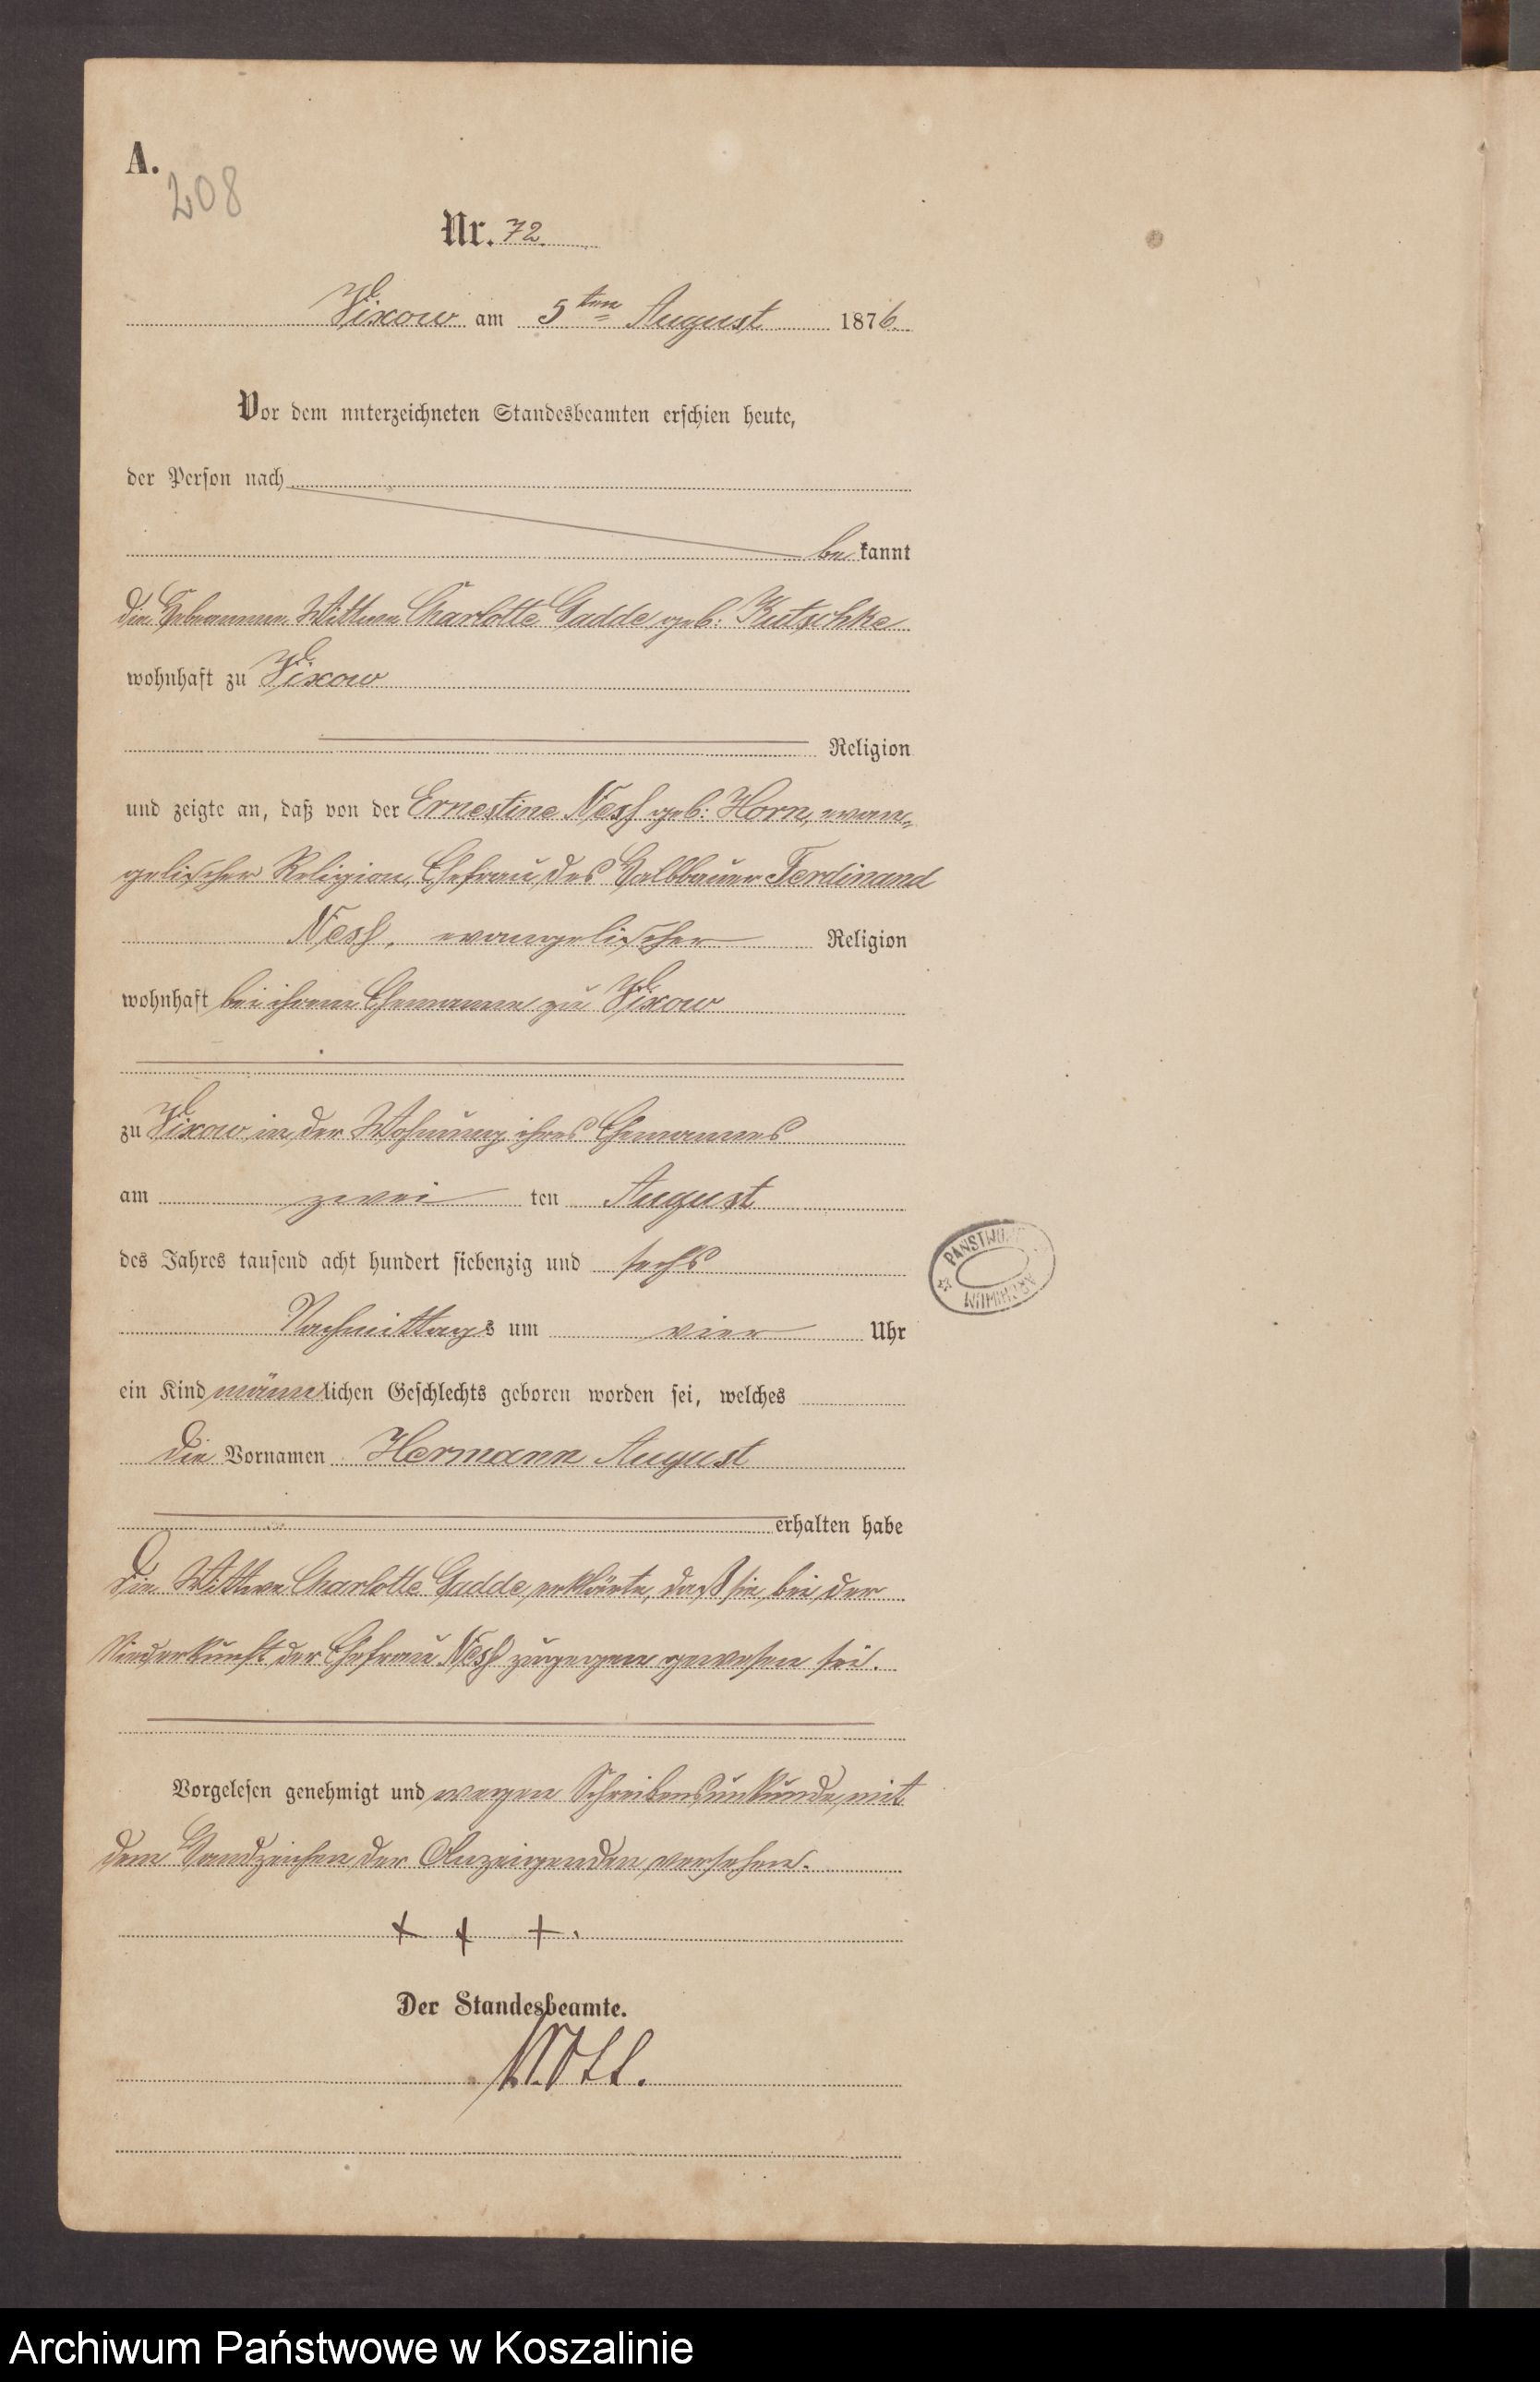 A.
208
Nr. 72.
Vixow am 5ten August 1876.
Vor dem unterzeichneten Standesbeamten erschien heute,
der Person nach
bekannt
die Hebamme Wittwe Charlotte Gadde geb. Kutschke
wohnhaft zu Vixow
Religion
und zeigte an, daß von der Ernestine Nesß geb. Horn, evan-
gelischer Religion, Ehefrau des Halbbauer Ferdinand
Nesß, evangelischer Religion
wohnhaft bei ihrem Ehemanne zu Vixow
zu Vixow in der Wohnung ihres Ehemannes
am zwei ten August
des Jahres tausend acht hundert siebenzig und sechs
Nachmittags um vier Uhr
ein Kind männlichen Geschlechts geboren worden sei, welches
die Vornamen Hermann August
erhalten habe
Die Wittwe Charlotte Gadde erklärte, daß sie bei der
Niederkunft der Ehefrau Nesß zugegen gewesen sei.
Vorgelesen genehmigt und wegen Schreibensunkunde mit
dem Handzeichen der Anzeigenden versehen.
+ + +.
Der Standesbeamte.
Archiwum Państwowe w Koszalinie